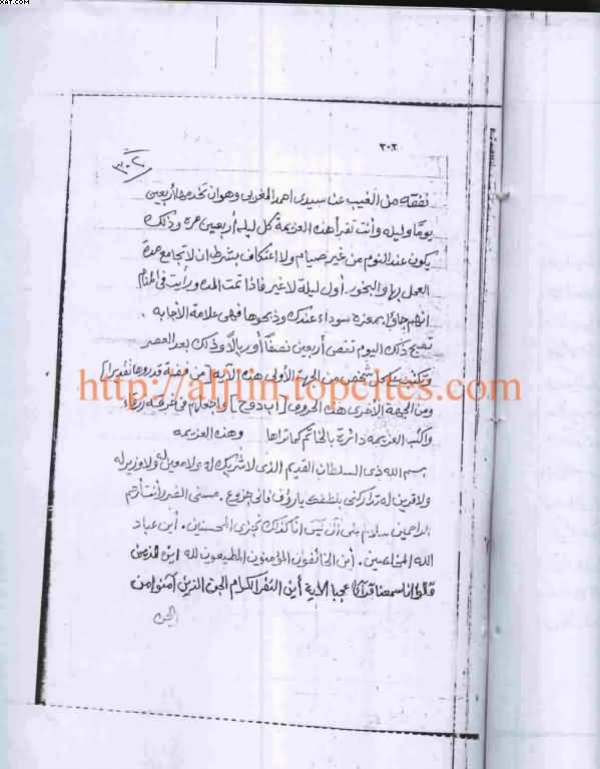 XAT.COM
٣٠٢
٣٠٢
نفقه من الغيب عن سيدى احمد المغربى وهو ان تخدمها أربعين
يومًا وليله وأنت تقرأ هذه العزيمة كل ليله أربعين مرة وذلك
يكون عند النوم من غير صيام ولا اعتكاف بشرط ان لا تجامع مدة
العمل بها والبخور. أول ليلة لا غير فاذا تمت المده ورأيت فى المنام
انهم جاؤا بمعزه سوداء عندك وذبحوها فهى علامة الأجابه.
تصبح ذلك اليوم أربعين نصفًا أو ريالًا وذلك بعد العصر
وتكتب من الجهة الأولى هذه من فضة
http://aljjin.topcites.com
ومن الجهة الأخرى هذه الحروف [ اب دوح ]
واكتب العزيمه دائرة بالخاتم كما تراها وهذه العزيمه
بسم الله ذى السلطان القديم الذى لا شريك له ولا له ولا وزير له
ولا قرين له تداركنى بلطفك يا رؤف فانى جزوع. مسنى الضر وأنت أرحم
الراحمين سلام على آل يس انا كذلك نجزى المحسنين. أين عباد
الله الصالحين. أين الخائفون المؤمنون المطيعون لله اين
انا سمعنا قرآنا عجبا الاية أين النفر الكرام الجن الذين آمنوا من
الجن